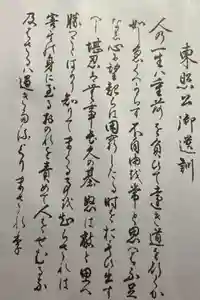 東照公御遺訓
人の一生は重荷を負ひて遠き道を行くか
如しいそくへからす不自由を常と思へは不足
なし心に望起らは困窮したる時をおもひ出す
へし堪忍は無事長久の基怒は敵と思へ
勝つことはかり知りてまくる事を知らされは
害其身に至るおのれを責めて人をせむるな
及はさるは過きたるよりまされり